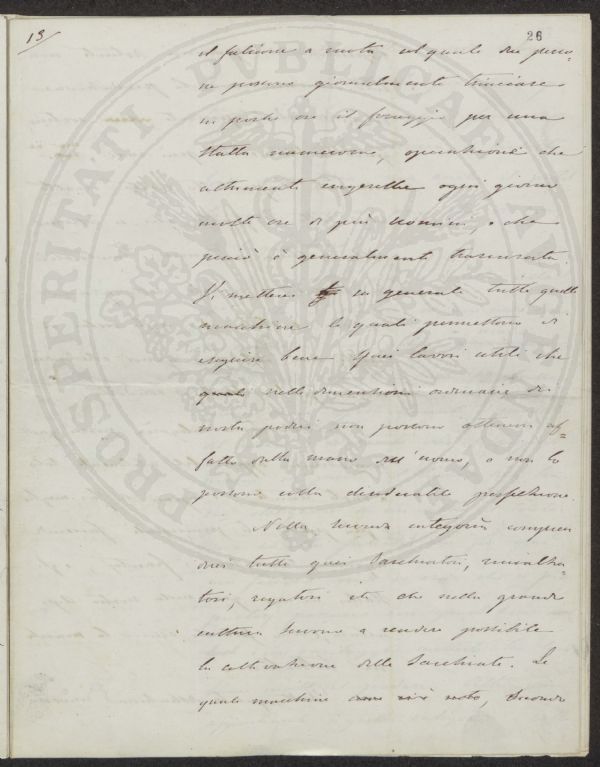 13/
26
il falcione a ruota col quale due perso-
ne possono giornalmente trinciare
in poche ore il foraggio per una
stalla numerosa, operazione che
altrimenti esigerebbe ogni giorno
molte ore di più uomini, e che
perciò è generalmente trascurata.
Vi metterei in generale tutte quelle
macchine le quali permettono di
eseguire bene quei lavori utili che
quali nelle dimensioni ordinarie di
nostri poderi non possono ottenersi af-
fatto dalla mano dell'uomo, o non lo
possono colla desiderabile perfezione.
Nella seconda categoria compren
derei tutti quei Sarchiatori, rincalza-
tori, rigatori etc che nella grande
cultura servono a rendere possibile
la coltivazione delle Sarchiate. Le
quali macchine come è noto, secondo
PROSPERITATI PUBLICAE AUGENDAE